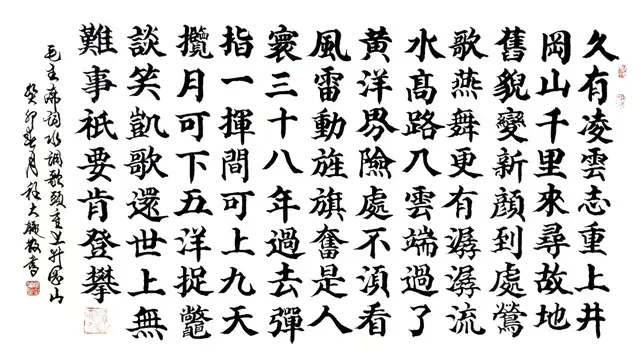 久有凌雲志重上井
岡山千里來尋故地
舊貌變新顔到處鶯
歌燕舞更有潺潺流
水髙路入雲端過了
黄洋界險處不湏看
風雷動旌旗奮是人
寰三十八年過去彈
指一揮間可上九天
攬月可下五洋捉鼈
談笑凱歌還世上無
難事祇要肯登攀
毛主席詞水調歌頭重上井岡山
癸卯春月